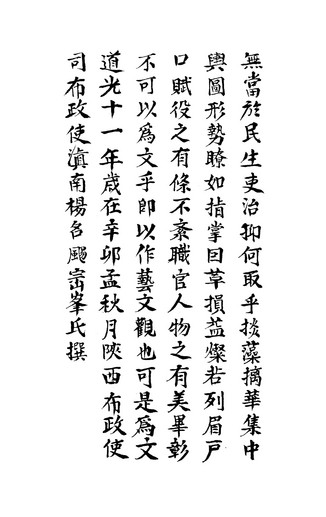 無當於民生吏治抑何取乎掞藻摛華集中
輿圖形勢瞭如指掌因革損益燦若列眉戶
口賦役之有條不紊職官人物之有美畢彰
不可以為文乎即以作藝文觀也可是為文
道光十一年歲在辛卯孟秋月陝西布政使
司布政使滇南楊名颺崇峯氏撰